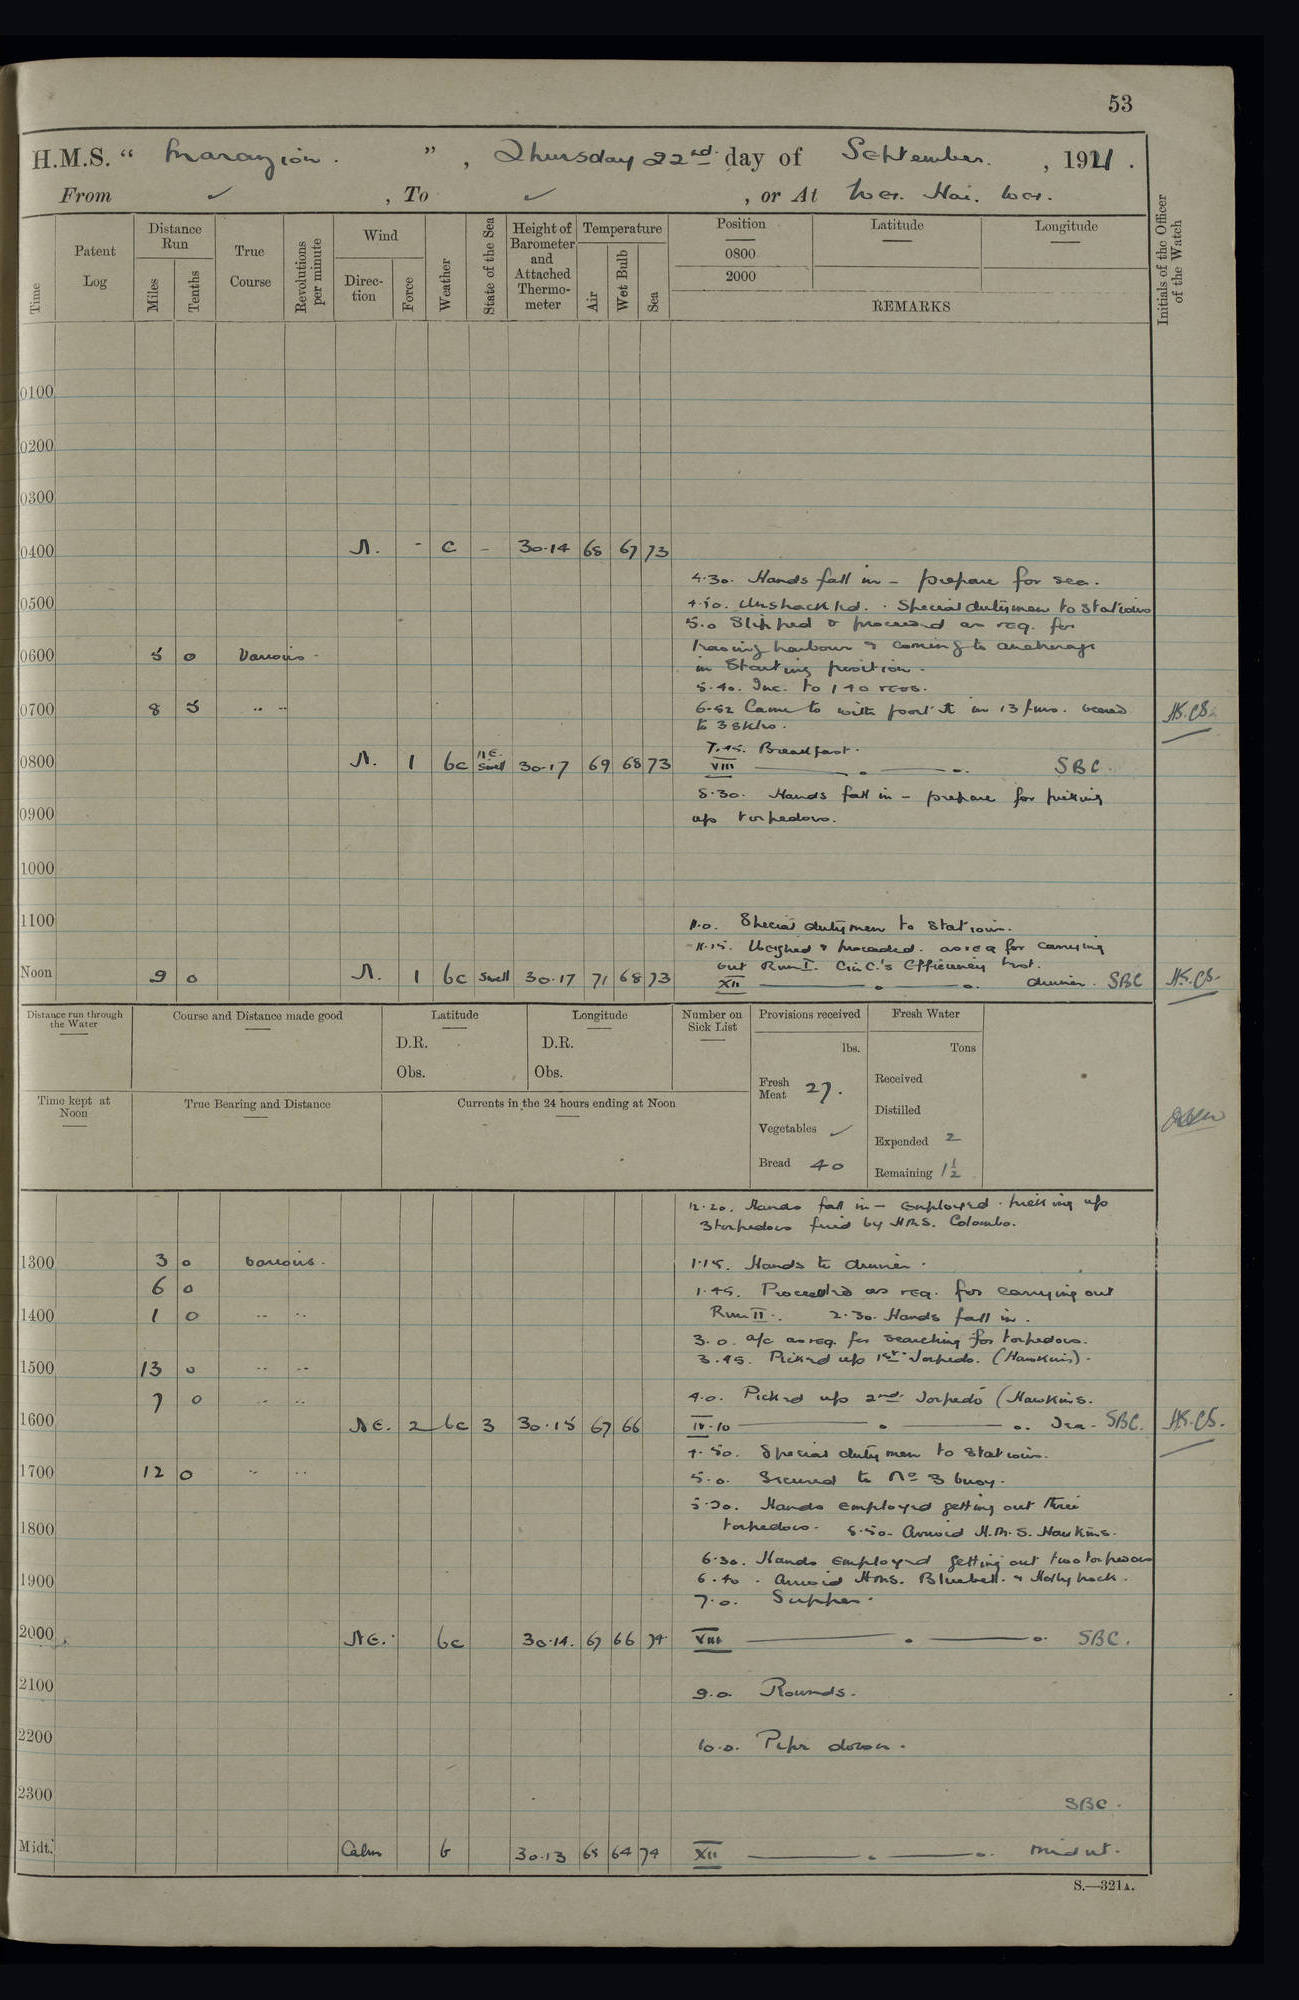 53
H.M.S. “ Marazion. ” , Thursday 22nd day of September. , 1921 .
From ✓ , To ✓ , or At Wei. Hai. Wei.
Time
Patent Log
Distance Run
Miles
Tenths
True Course
Revolutions per minute
Wind
Direction
Force
Weather
State of the Sea
Height of Barometer and Attached Thermometer
Temperature
Air
Wet Bulb
Sea
Position
0800
2000
Latitude
Longitude
REMARKS
Initials of the Officer of the Watch
0100
0200
0300
0400 N. - c - 30.14 68 67 73
4.30. Hands fall in – prepare for sea.
0500
4.50. Unshackled. Special dutymen to stations
5.0 Slipped & proceeded as req. for
0600 5 0 Various
leaving harbour & coming to anchorage
in Starting position.
5.40. Inc. to 140 revs.
0700 8 5 " "
6.52 Came to with port in 13 fms. veered
to 3 shks.
7.45. Breakfast.
0800 N. 1 bc NE. Swell 30.17 69 68 73
VIII SBC.
8.30. Hands fall in – prepare for picking
0900
up torpedoes.
1000
1100
11.0. Special dutymen to stations.
11.15. Weighed & proceeded. as req for carrying
out Run I. C in C.'s Efficiency test.
Noon 9 0 N. 1 bc Swell 30.17 71 68 73
XII dinner. SBC
Distance run through the Water
Course and Distance made good
Latitude
D.R.
Obs.
Longitude
D.R.
Obs.
Number on Sick List
Provisions received
lbs.
Fresh Meat 27.
Vegetables ✓
Bread 40
Fresh Water
Tons
Received
Distilled
Expended 2
Remaining 1½
Time kept at Noon
True Bearing and Distance
Currents in the 24 hours ending at Noon
12.20. Hands fall in – employed picking up
3 torpedoes fired by HMS. Colombo.
1300 3 0 Various.
1.15. Hands to dinner.
6 0
1.45. Proceeded as req. for carrying out
1400 1 0 " "
Run II. 2.30. Hands fall in.
3.0. a/c as req. for searching for torpedoes.
3.45. Picked up 1st Torpedo. (Hawkins).
1500 13 0 " "
7 0 " "
4.0. Picked up 2nd Torpedo (Hawkins.
1600 NE. 2 bc 3 30.15 67 66
IV.10 Tea. SBC.
4.50. Special duty men to stations.
1700 12 0 " "
5.0. Secured to No 3 buoy.
5.20. Hands employed getting out three
torpedoes. 5.50. Arrived H.M.S. Hawkins.
1800
6.30. Hands employed getting out two torpedoes
1900
6.40. Arrived HMS. Bluebell. & Hollyhock.
7.0. Supper.
2000 NE. bc 30.14. 67 66 74
VIII SBC.
2100
9.0. Rounds.
2200
10.0. Pipe down.
2300
SBC.
Midt. Calm b 30.13 68 64 74
XII Midnt.
S.—321A.